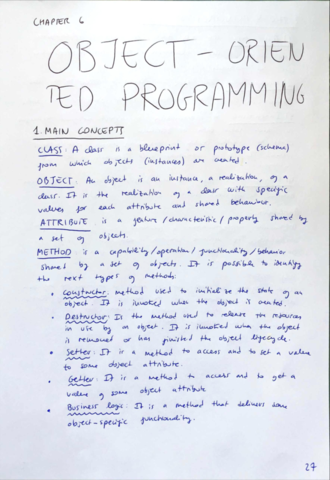 CHAPTER 6
OBJECT-ORIEN
TED PROGRAMMING
1. MAIN CONCEPTS
CLASS: A class is a blueprint or prototype (schema)
from which objects (instances) are created.
OBJECT: An object is an instance, a realization, of a
class. It is the realization of a class with specific
values for each attribute and shared behaviour.
ATTRIBUTE is a feature/characteristic/property shared by
a set of objects
METHOD is a capability/operation/functionality/behavior
shared by a set of objects. It is possible to identify
the next types of methods:
• Constructor: method used to initialize the state of an
object. It is invoked when the object is created.
• Destructor: Is the method used to release the resources
in use by an object. It is invoked when the object
is removed or has finished the object lifecycle.
• Setter: It is a method to access and to set a value
to some object attribute.
• Getter: It is a method to access and to get a
value of some object attribute
• Business logic: It is a method that delivers some
object-specific functionality.
27